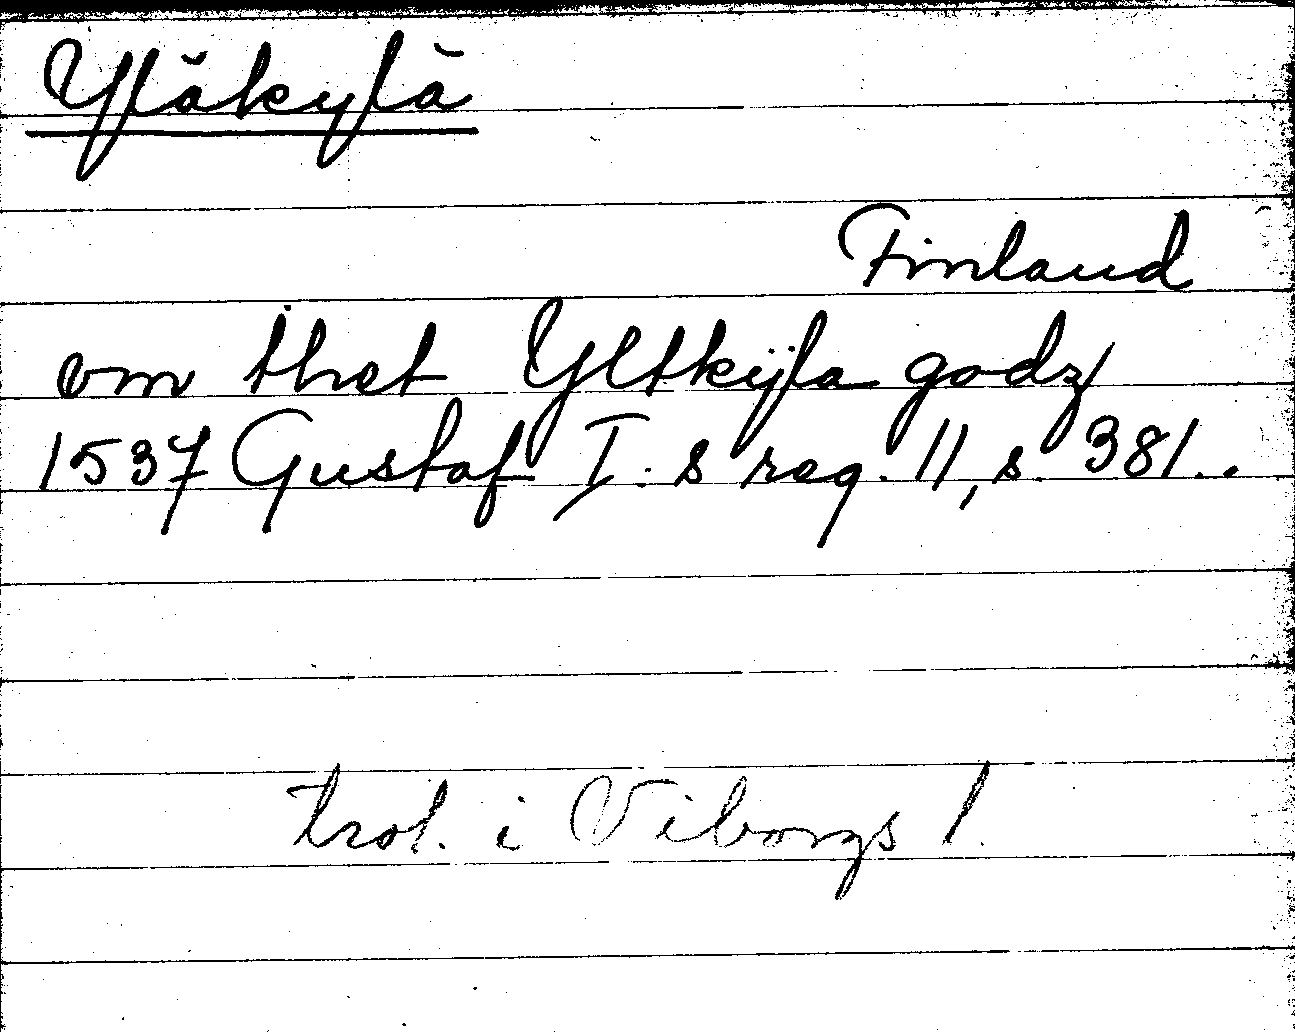 Yläkylä
Finland
om thet Yltkÿla godz
1537 Gustaf I:s reg. 11, s. 381..
trol. i Viborgs l.